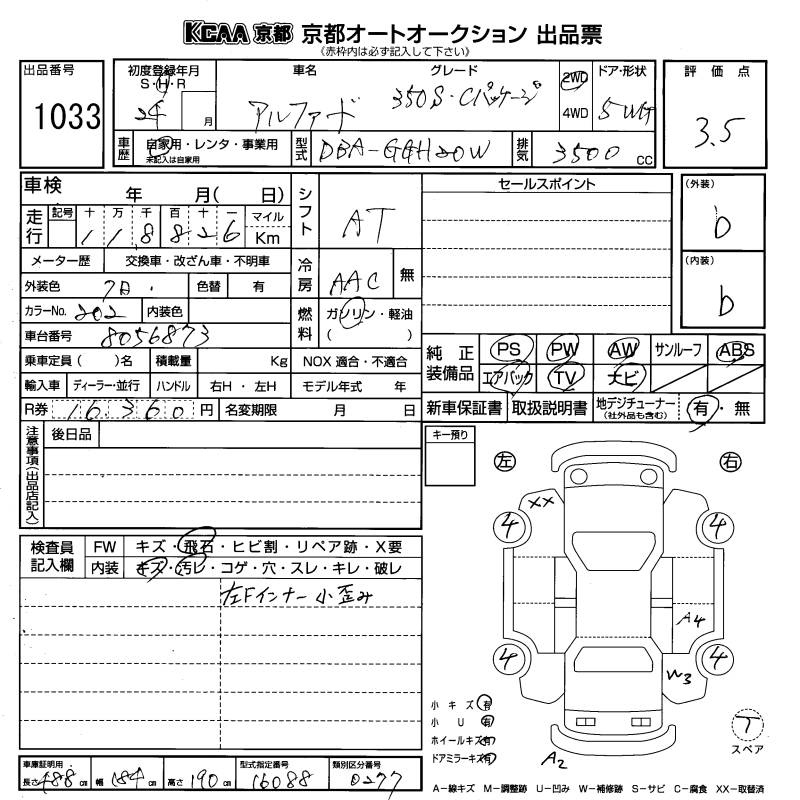 KCAA 京都 京都オートオークション 出品票
(赤枠内は必ず記入して下さい)
出品番号
1033
初度登録年月
S・H・R
24 月
車名
アルファード
グレード
350S・Cパッケージ
2WD
4WD
ドア・形状
5 WG
評価点
3.5
車歴
自家用・レンタ・事業用
未記入は自家用
型式
DBA-GGH20W
排気
3500 CC
車検 年 月( 日)
シフト
AT
セールスポイント
(外装)
b
(内装)
b
走行
記号 十 万 千 百 十 一 マイル
1 1 8 8 2 6 Km
メーター歴 交換車・改ざん車・不明車
冷房
AAC 無
外装色 色替 有
カラーNo. 202 内装色
燃料
ガソリン・軽油
( )
車台番号 8056873
乗車定員( )名 積載量 Kg NOX 適合・不適合
輸入車 ディーラー・並行 ハンドル 右H・左H モデル年式 年
R券 16360 円 名変期限 月 日
純正装備品
PS PW AW サンルーフ ABS
エアバック TV ナビ
新車保証書 取扱説明書 地デジチューナー
(社外品も含む) 有・無
注意事項(出品店記入)
後日品
キー預り
左 右
XX
4 4
A4
4 4
W3
A2
検査員記入欄
FW キズ・飛石・ヒビ割・リペア跡・X要
内装 キズ・汚レ・コゲ・穴・スレ・キレ・破レ
左Fインナー小歪み
小キズ 有
小 U 有
ホイールキズ 有
ドアミラーキズ 有
T
スペア
車庫証明用
長さ 488 cm 幅 184 cm 高さ 190 cm
型式指定番号
16088
類別区分番号
0277
A-線キズ M-調整跡 U-凹み W-補修跡 S-サビ C-腐食 XX-取替済